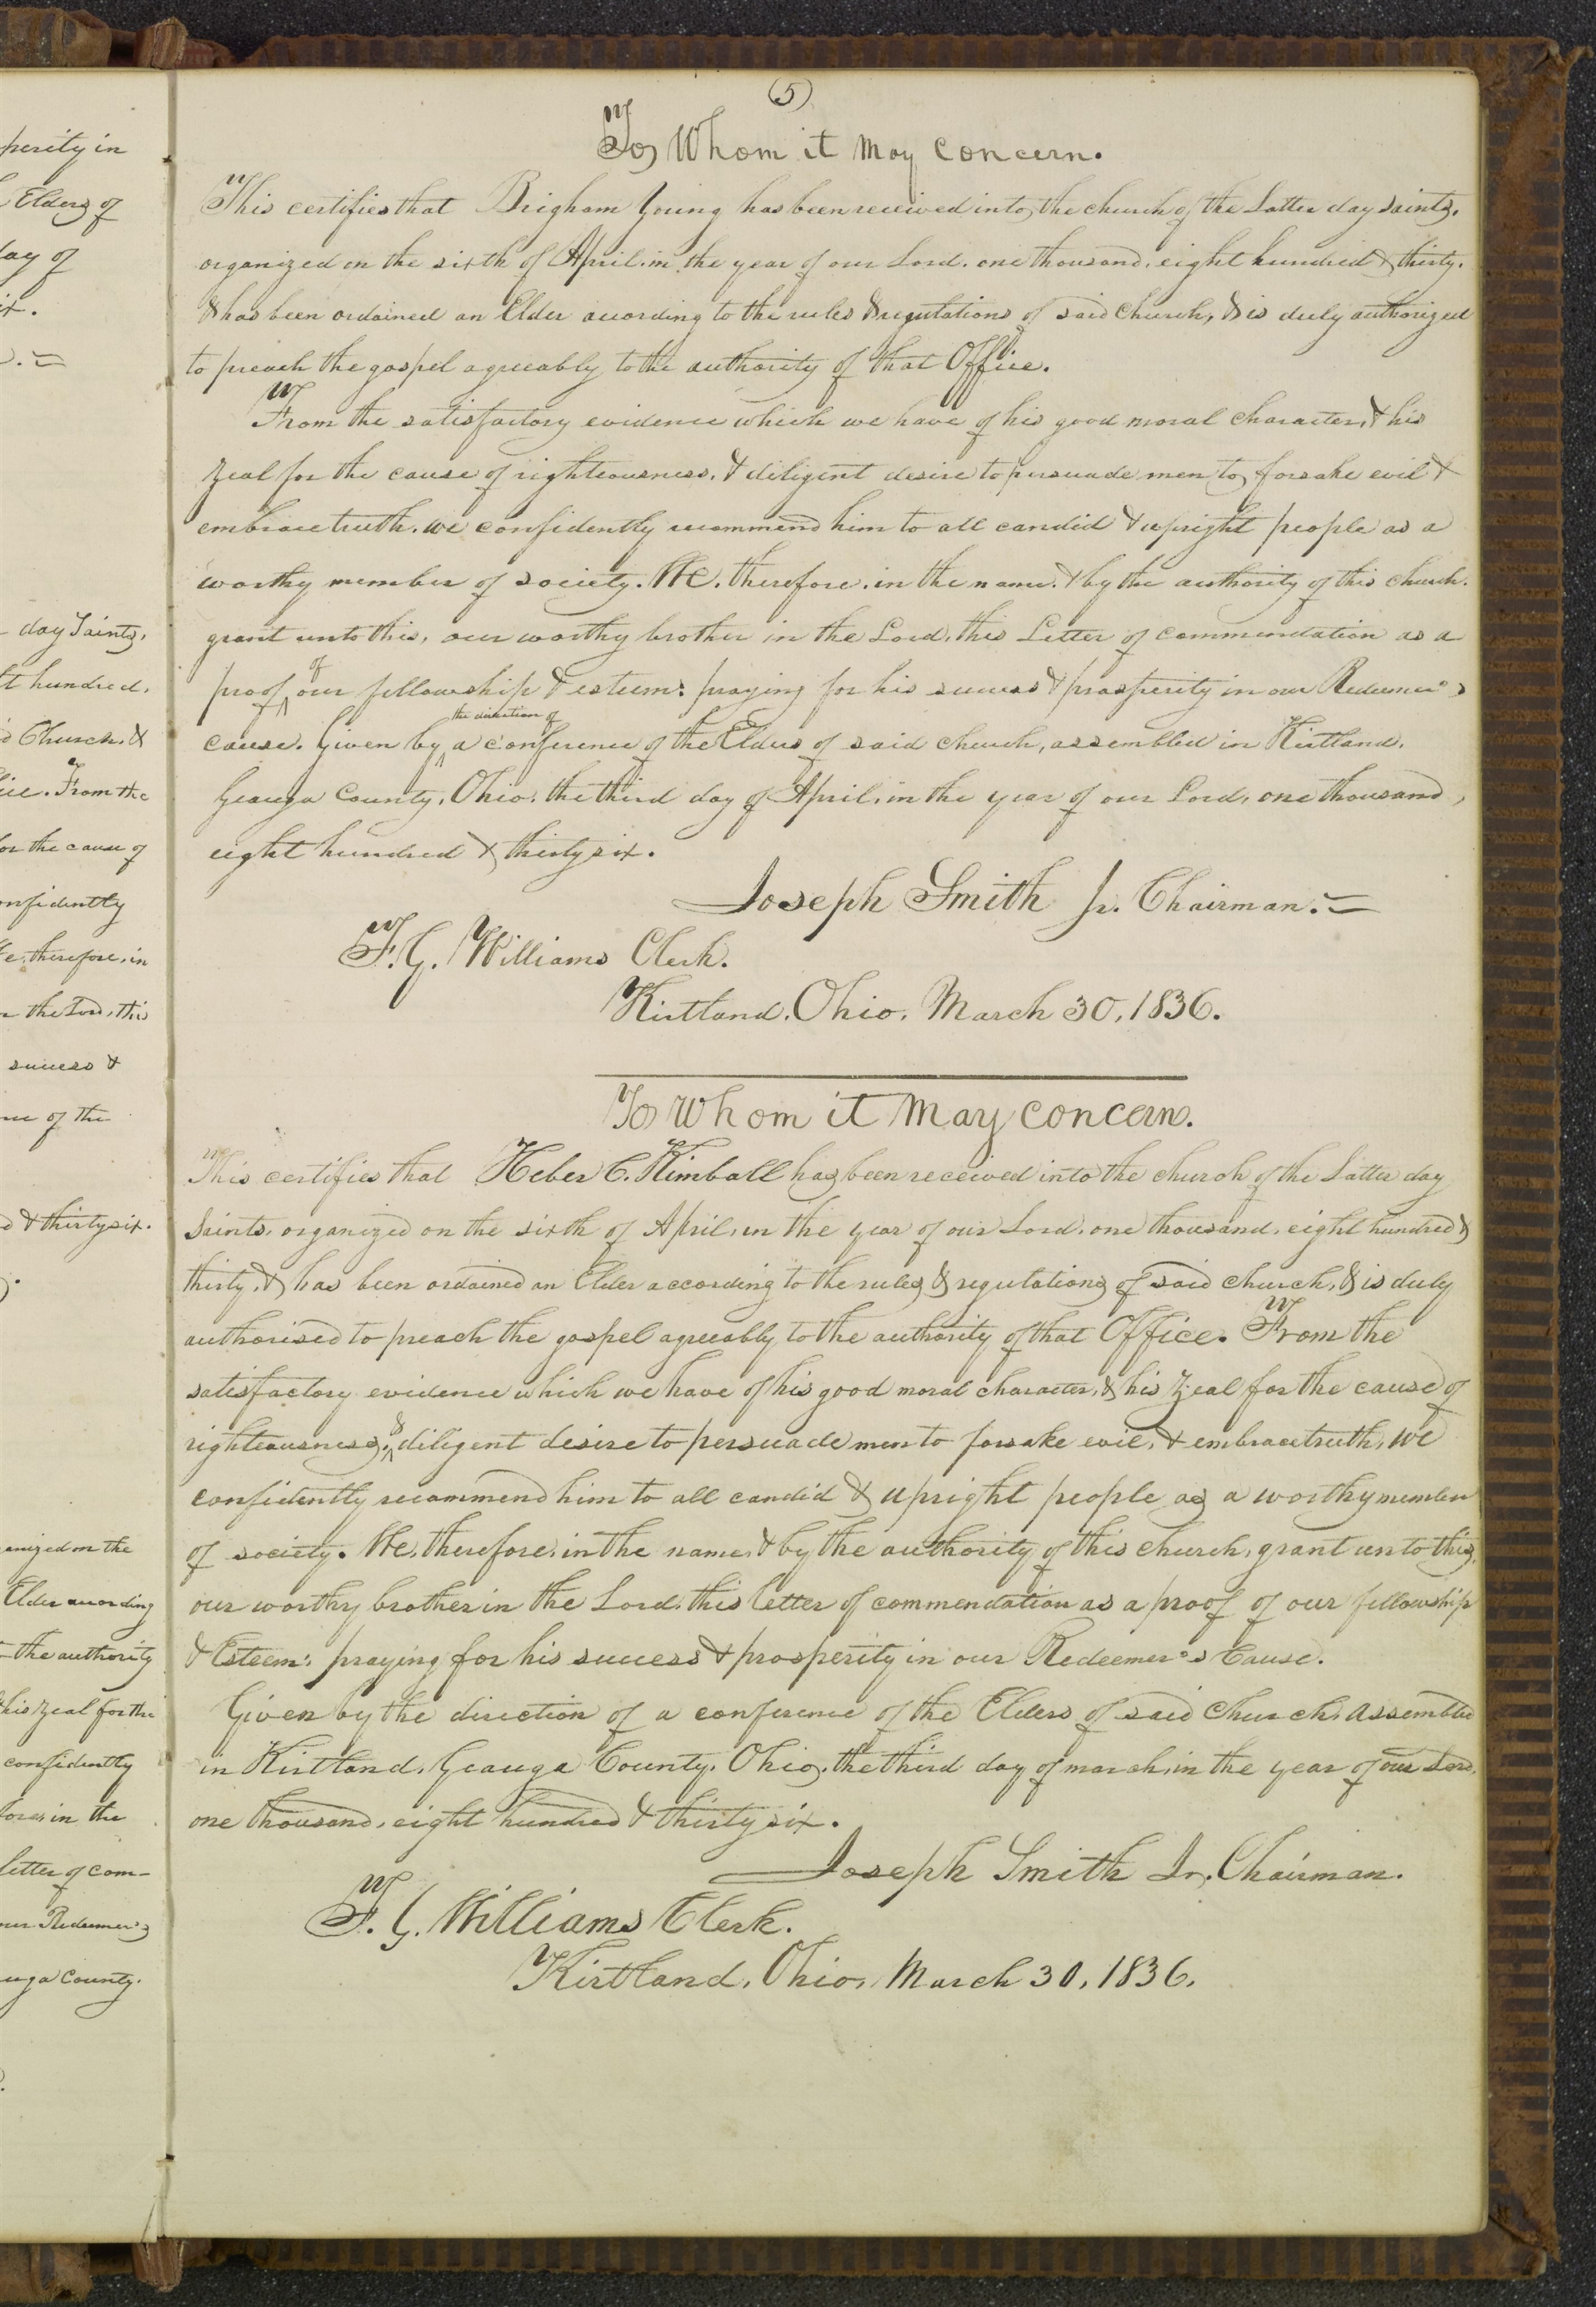 perity in
Elders of
day of
day Saints,
t hundred,
Church, &
From the
for the cause of
confidently
therefore, in
the Lord, this
success &
of the
& thirty six.
organized on the
Elder according
the authority
his zeal for the
confidently
in the
letter of com-
our Redeemer's
County.
(5)
To Whom it May Concern.
This certifies that Brigham Young has been received into the church of the Latter day Saints,
organized on the sixth of April, in the year of our Lord, one thousand, eight hundred & thirty.
& has been ordained an Elder according to the rules & regulations of said church, & is duly authorized
to preach the gospel agreeably to the authority of that Office.
From the satisfactory evidence which we have of his good moral character, & his
zeal for the cause of righteousness, & diligent desire to persuade men to forsake evil &
embrace truth, we confidently recommend him to all candid & upright people as a
worthy member of society. We, therefore, in the name, & by the authority of this church,
grant unto this, our worthy brother in the Lord, this Letter of commendation as a
proof of our fellowship & esteem: praying for his success & prosperity in our Redeemer's
cause. Given by the direction of a conference of the Elders of said church, assembled in Kirtland,
Geauga County, Ohio, the third day of April, in the year of our Lord, one thousand,
eight hundred & thirty six.
Joseph Smith Jr. Chairman.
F. G. Williams Clerk.
Kirtland, Ohio, March 30, 1836.
To Whom it May Concern.
This certifies that Heber C. Kimball has been received into the church of the Latter day
Saints, organized on the sixth of April, in the year of our Lord, one thousand, eight hundred &
thirty, & has been ordained an Elder according to the rules & regulations of said church, & is duly
authorised to preach the gospel agreeably to the authority of that Office. From the
satisfactory evidence which we have of his good moral character, & his zeal for the cause of
righteousness, & diligent desire to persuade men to forsake evil, & embrace truth, we
confidently recommend him to all candid & upright people as a worthy member
of society. We, therefore, in the name, & by the authority of this church, grant unto this,
our worthy brother in the Lord, this letter of commendation as a proof of our fellowship
& Esteem: praying for his success & prosperity in our Redeemer's Cause.
Given by the direction of a conference of the Elders of said Church, assembled
in Kirtland, Geauga County, Ohio, the third day of march, in the year of our Lord,
one thousand, eight hundred & thirty six.
Joseph Smith Jr. Chairman.
F. G. Williams Clerk.
Kirtland, Ohio, March 30, 1836.